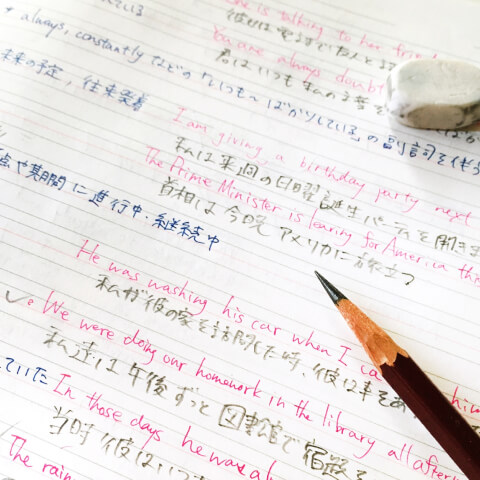 She is talking to her frie
彼女は電話で友人と話
っている
always, constantly などの「いつも〜ばかりしている」の副詞を伴う
You are always doubt
君はいつも私の言
未来の予定, 往来発着
I am giving a birthday party next
私は来週の日曜誕生パーティを開きま
The Prime Minister is learing for America this
首相は今晩アメリカに旅立つ
点や期間に進行中・継続中
He was washing his car when I ca him
私が彼の家を訪問した時、彼は車をあ
We were doing our homework in the library all after
私達は午後ずっと図書館で宿題を
していた
In those days he was al
当時彼はいつ
The rain